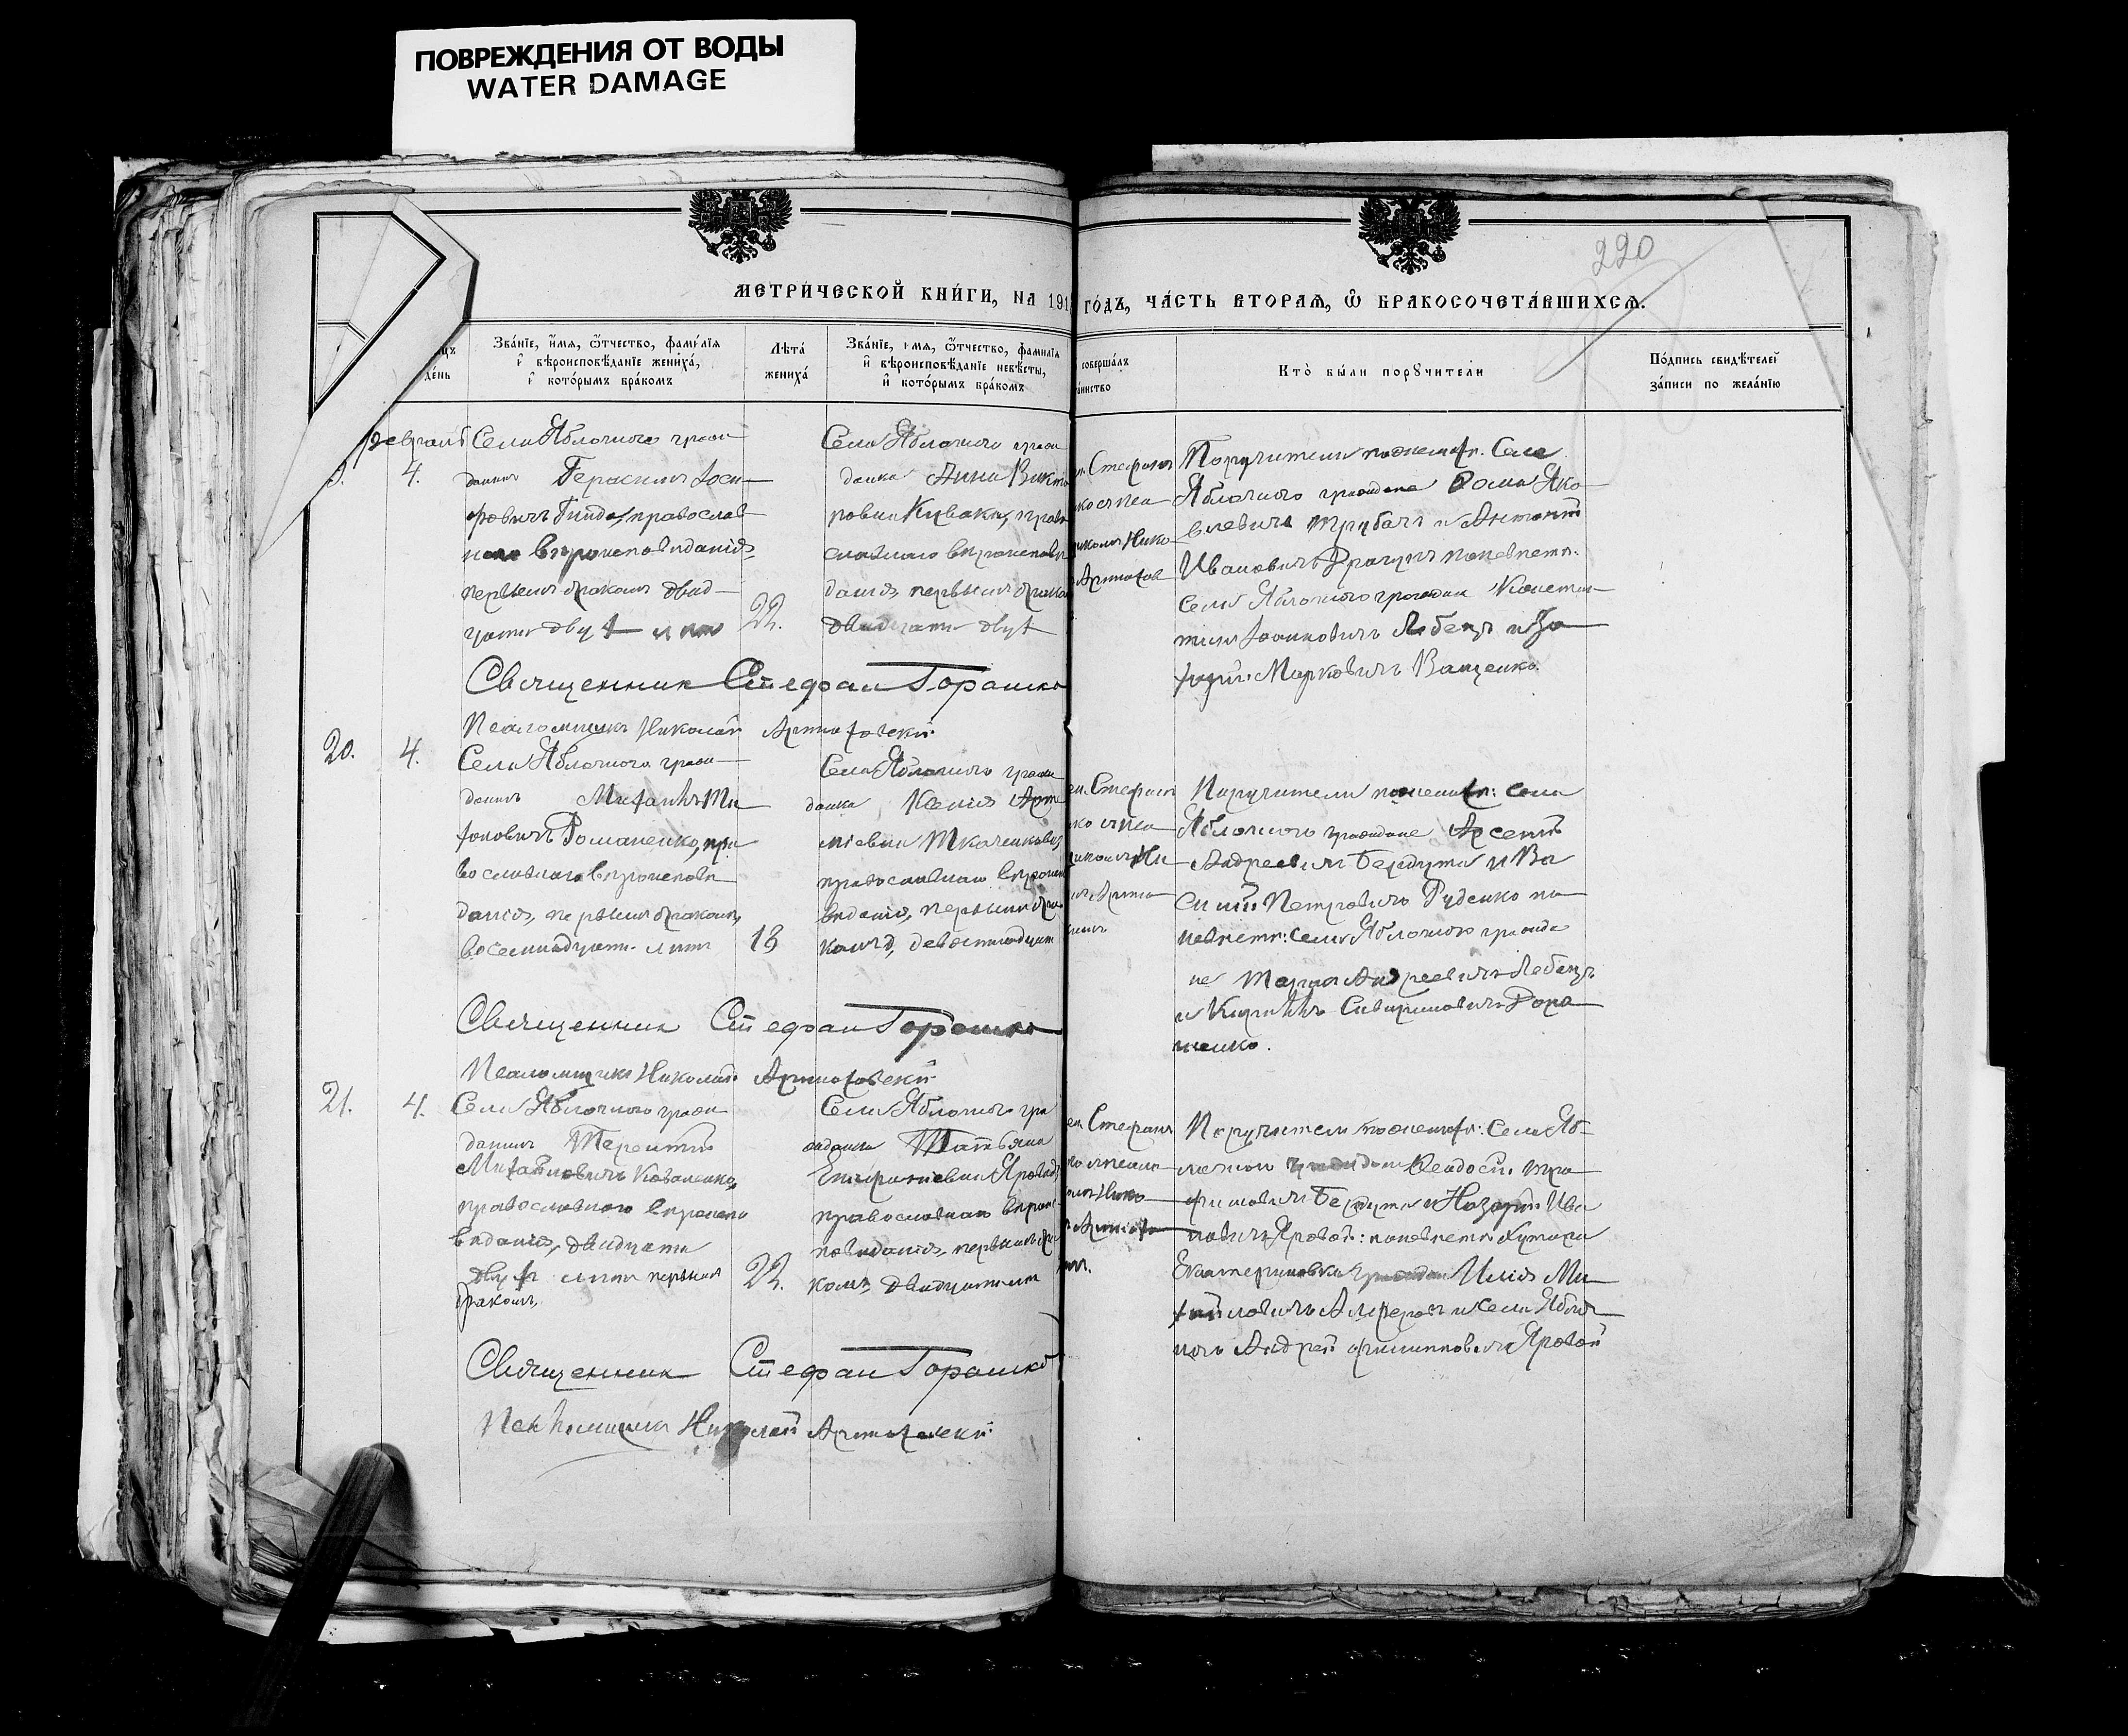 ПОВРЕЖДЕНИЯ ОТ ВОДЫ
WATER DAMAGE
220
МЕТРИ́ЧЕСКОЙ КНИ́ГИ, НА 191
ГО́ДЪ, ЧА́СТЬ ВТОРАѦ, Ѿ БРАКОСОЧЕТА́ВШИХСѦ.
Зва́нїе, и҆́мѧ, ѻ҆́тчество, фами́лїѧ
и҆ вѣроисповѣ́данїе жениха́,
и҆ кото́рымъ бра́комъ
Лѣта̀
жениха́
Зва́нїе, имѧ, ѻ҆́тчество, фамилїѧ
и҆ вѣроисповѣ́данїе невѣ́сты,
и҆ кото́рымъ бра́комъ
день
соверша́лъ
Кто̀ бы́ли порꙋчители
По́дпись свидѣ́телей
за́писи по жела́нїю
февраль
4.
Села Яблочного граж
данинъ Герасимъ Іоси
фовичъ Гинда, православ
наго вѣроисповѣданія
первымъ бракомъ двад
цати двухъ лѣтъ
22.
Села Яблочного граж
данка Анна Викто
ровна Кивака, право
славнаго вѣроисповѣ
данія, первымъ брако
двадцати двухъ
Стефанъ
Нико
Артюхов
Поручители по жениху: Села
Яблочного граждане Фома Яко
влевичъ Трубачъ и Антоній
Ивановичъ Драгунъ по невѣстѣ:
села Яблочного граждане Констан
тинъ Іоанновичъ Лебедь и За
харій Марковичъ Ващенко.
Священник Стефан Горошко
Псаломщикъ Николай Артюховскій
20.
4.
Села Яблочного граж
данинъ Михаилъ Ти
хоновичъ Романенко, пра
вославнаго вѣроисповѣ
данія, первымъ бракомъ,
восемнадцати лѣтъ
18
Села Яблочного граж
данка Ксенія Арте
міевна Ткаченкова,
православнаго вѣроиспо
вѣданія, первымъ бра
комъ, девятнадцати
Стефанъ
Поручители по жениху: села
Яблочного граждане Арсеній
Андреевичъ Бердута и Ва
силій Петровичъ Руденко по
невѣстѣ: села Яблочного гражда
не Андреевичъ Лебедь
и Кириллъ Доро
шенко.
Священник Стефан Горошко
Псаломщикъ Николай Артюховскій
21.
4.
Села Яблочного граж
данинъ Терентій
Михайловичъ Коваленко,
православнаго вѣроиспо
вѣданія, двадцати
двухъ лѣтъ первымъ
бракомъ.
22.
Села Яблочного гра
жданка Татьяна
Епифаніевна Яровая,
православнаго вѣроис
повѣданія, первымъ бра
комъ, двадцати лѣтъ
Стефанъ
Нико
Артюхо
Поручители по жениху: села Яб
лочного граждане Феодосій Тро
фимовичъ Бердута и Назарій Ива
новичъ Яровой: по невѣстѣ Хутора
Екатериновки граждан Илія Ми
хайловичъ и села Яблоч
ного Андрей Филипповичъ Яровой
Священник Стефан Горошко
Псаломщикъ Николай Артюховскій